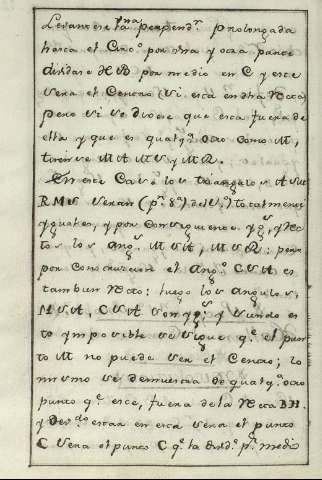 Levantese la una perpend.r prolongada
hasta el Circ.o por una y otra parte
dividase H B por medio en C y este
sera el Centro (si esta en dha Recta
pero si se dixere que esta fuera de
ella y que es qualq.r otro como M,
tirense M A M S y M R.
En este Caso los triangulos A S M
R M S seran (p.r 8.a) de l.o 1.o) totalmente
yguales, y por consiguiente yg.s y Rec
tos los ang.s M S A, M S R: pero
por Construccion el Ang.o C S A es
tambien Recto: luego los angulos,
M S A, C S A son yg.s; y siendo es
to ymposible se sigue q.e el pun
to M no puede ser el Centro; lo
mismo se demuestra de qualq.r otro
punto q.e este, fuera de la Recta B H.
y deviendo estar en esta sera el punto
C sera el punto C q.e la divid.e p.r medio